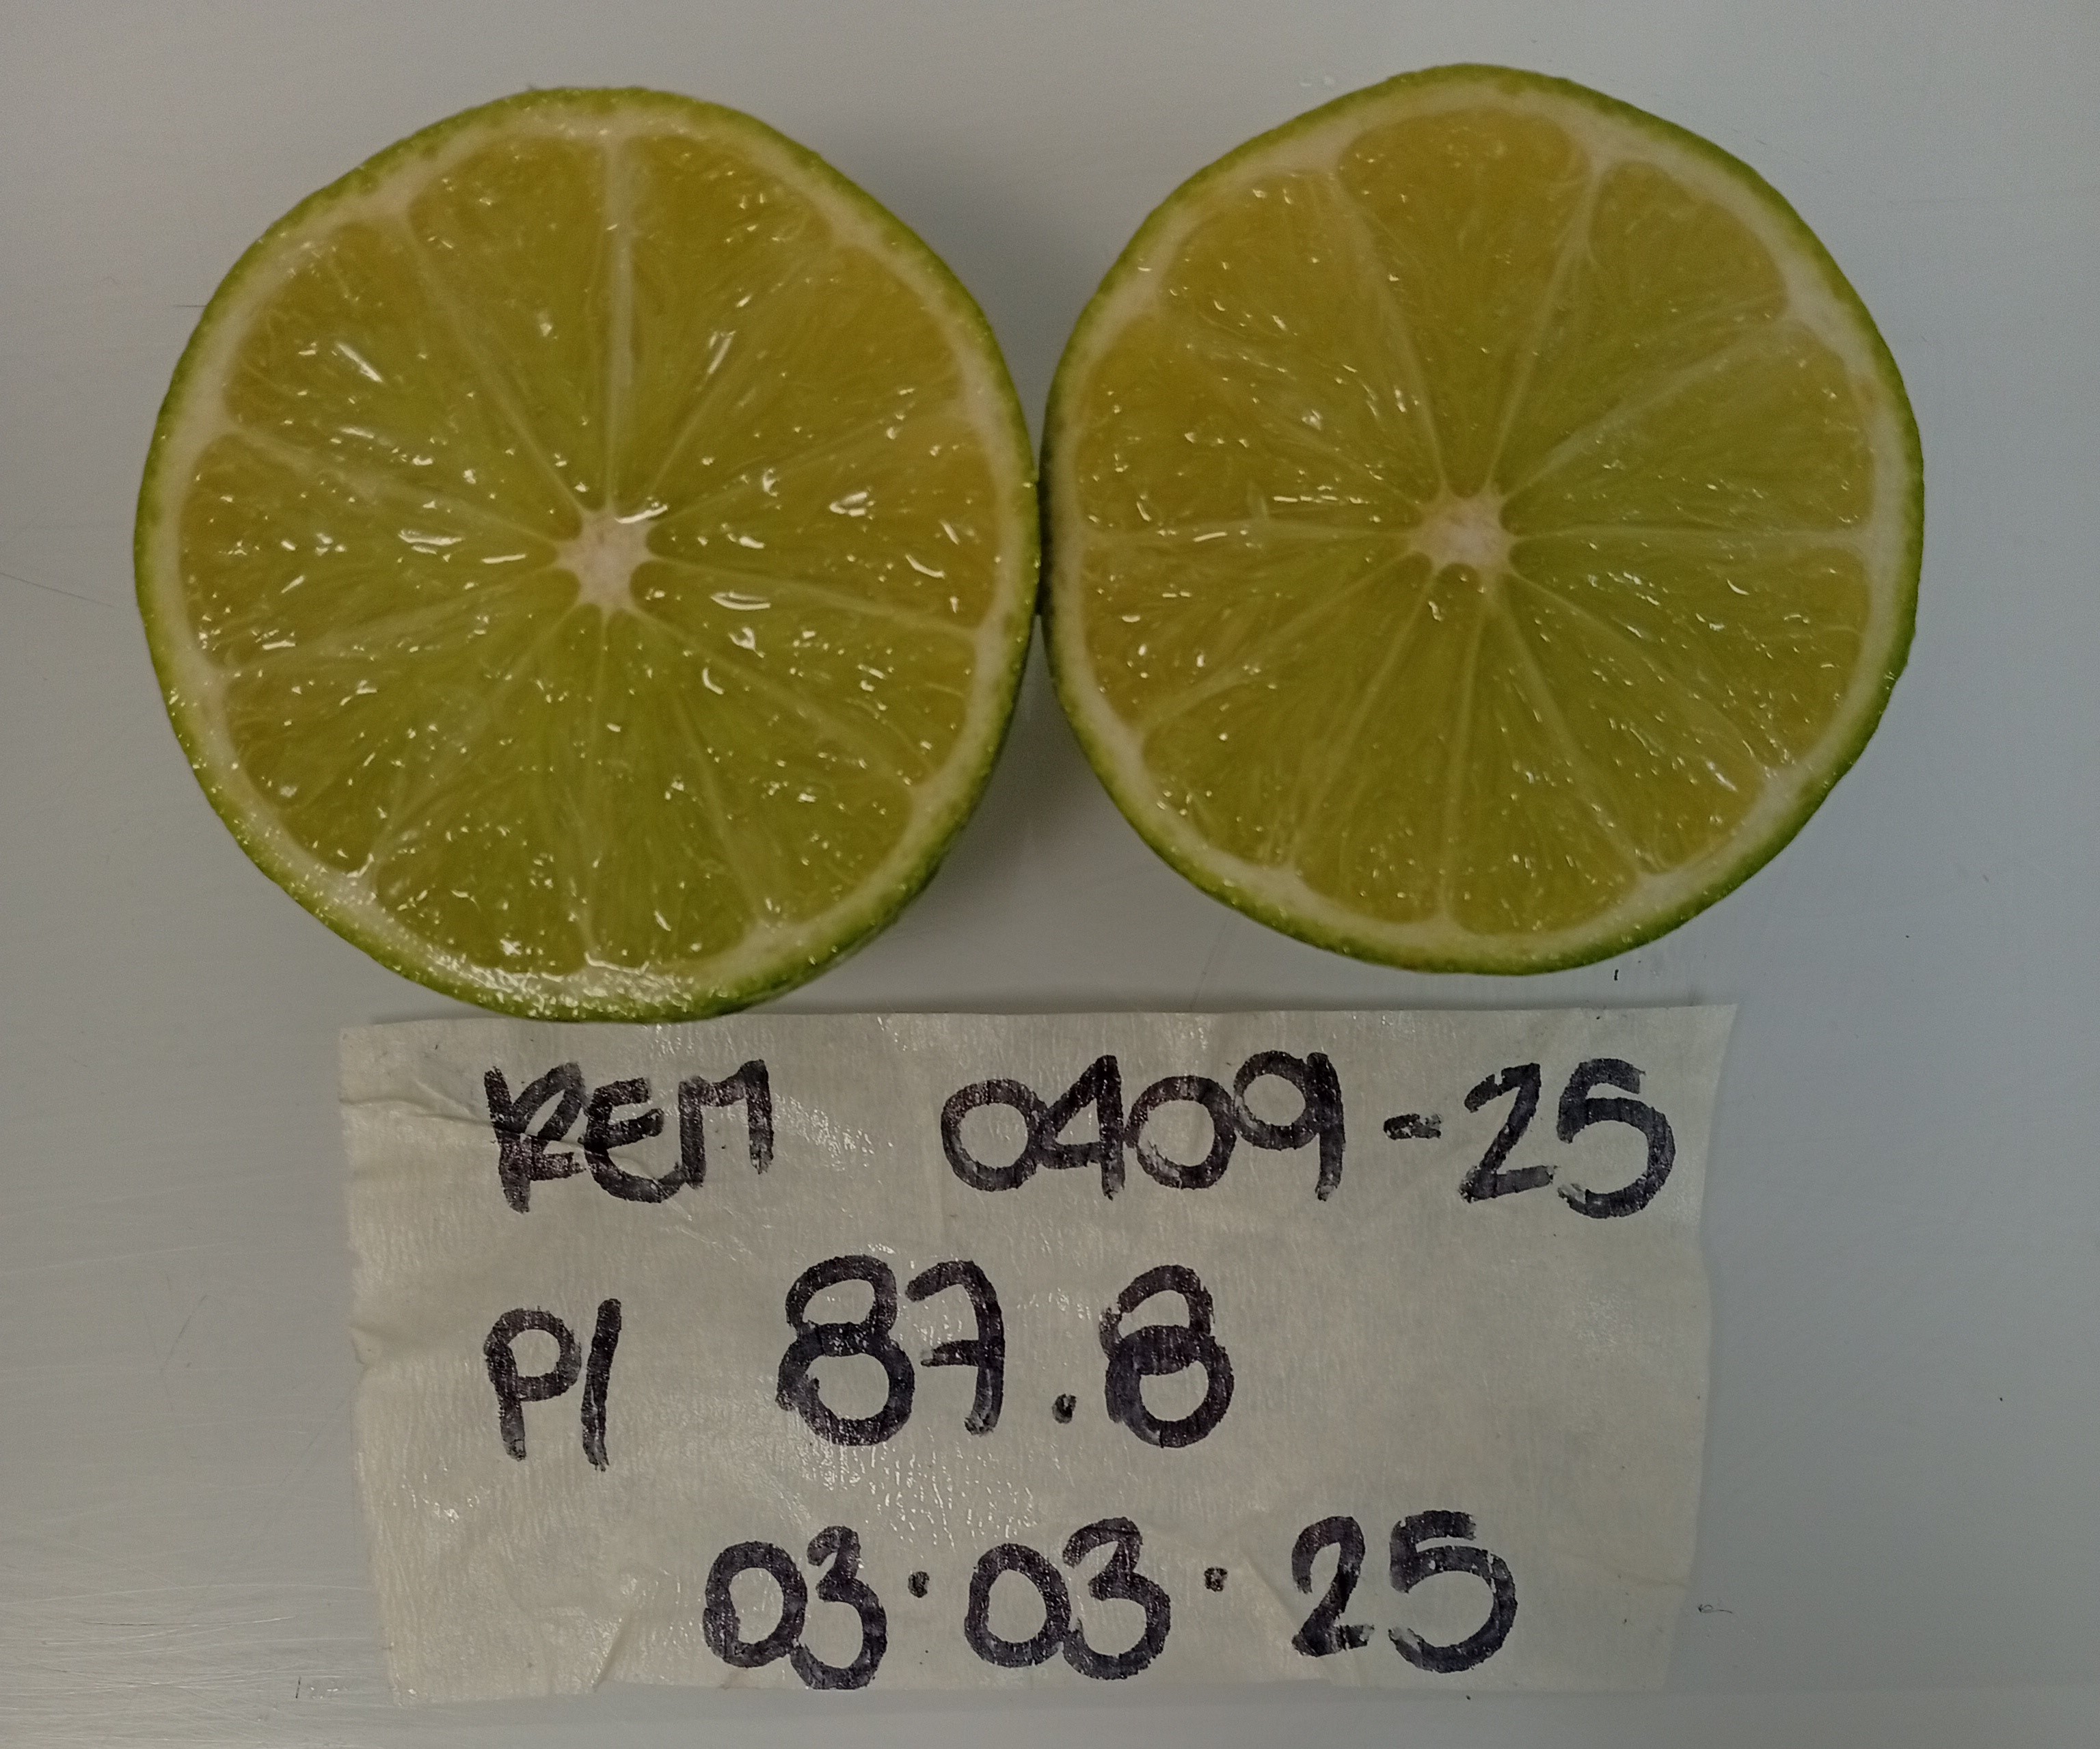 REM 0409-25
P1 87.8
03.03.25